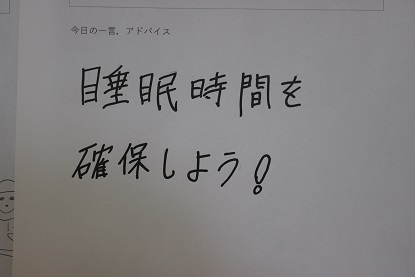 今日の一言，アドバイス
睡眠時間を
確保しよう!